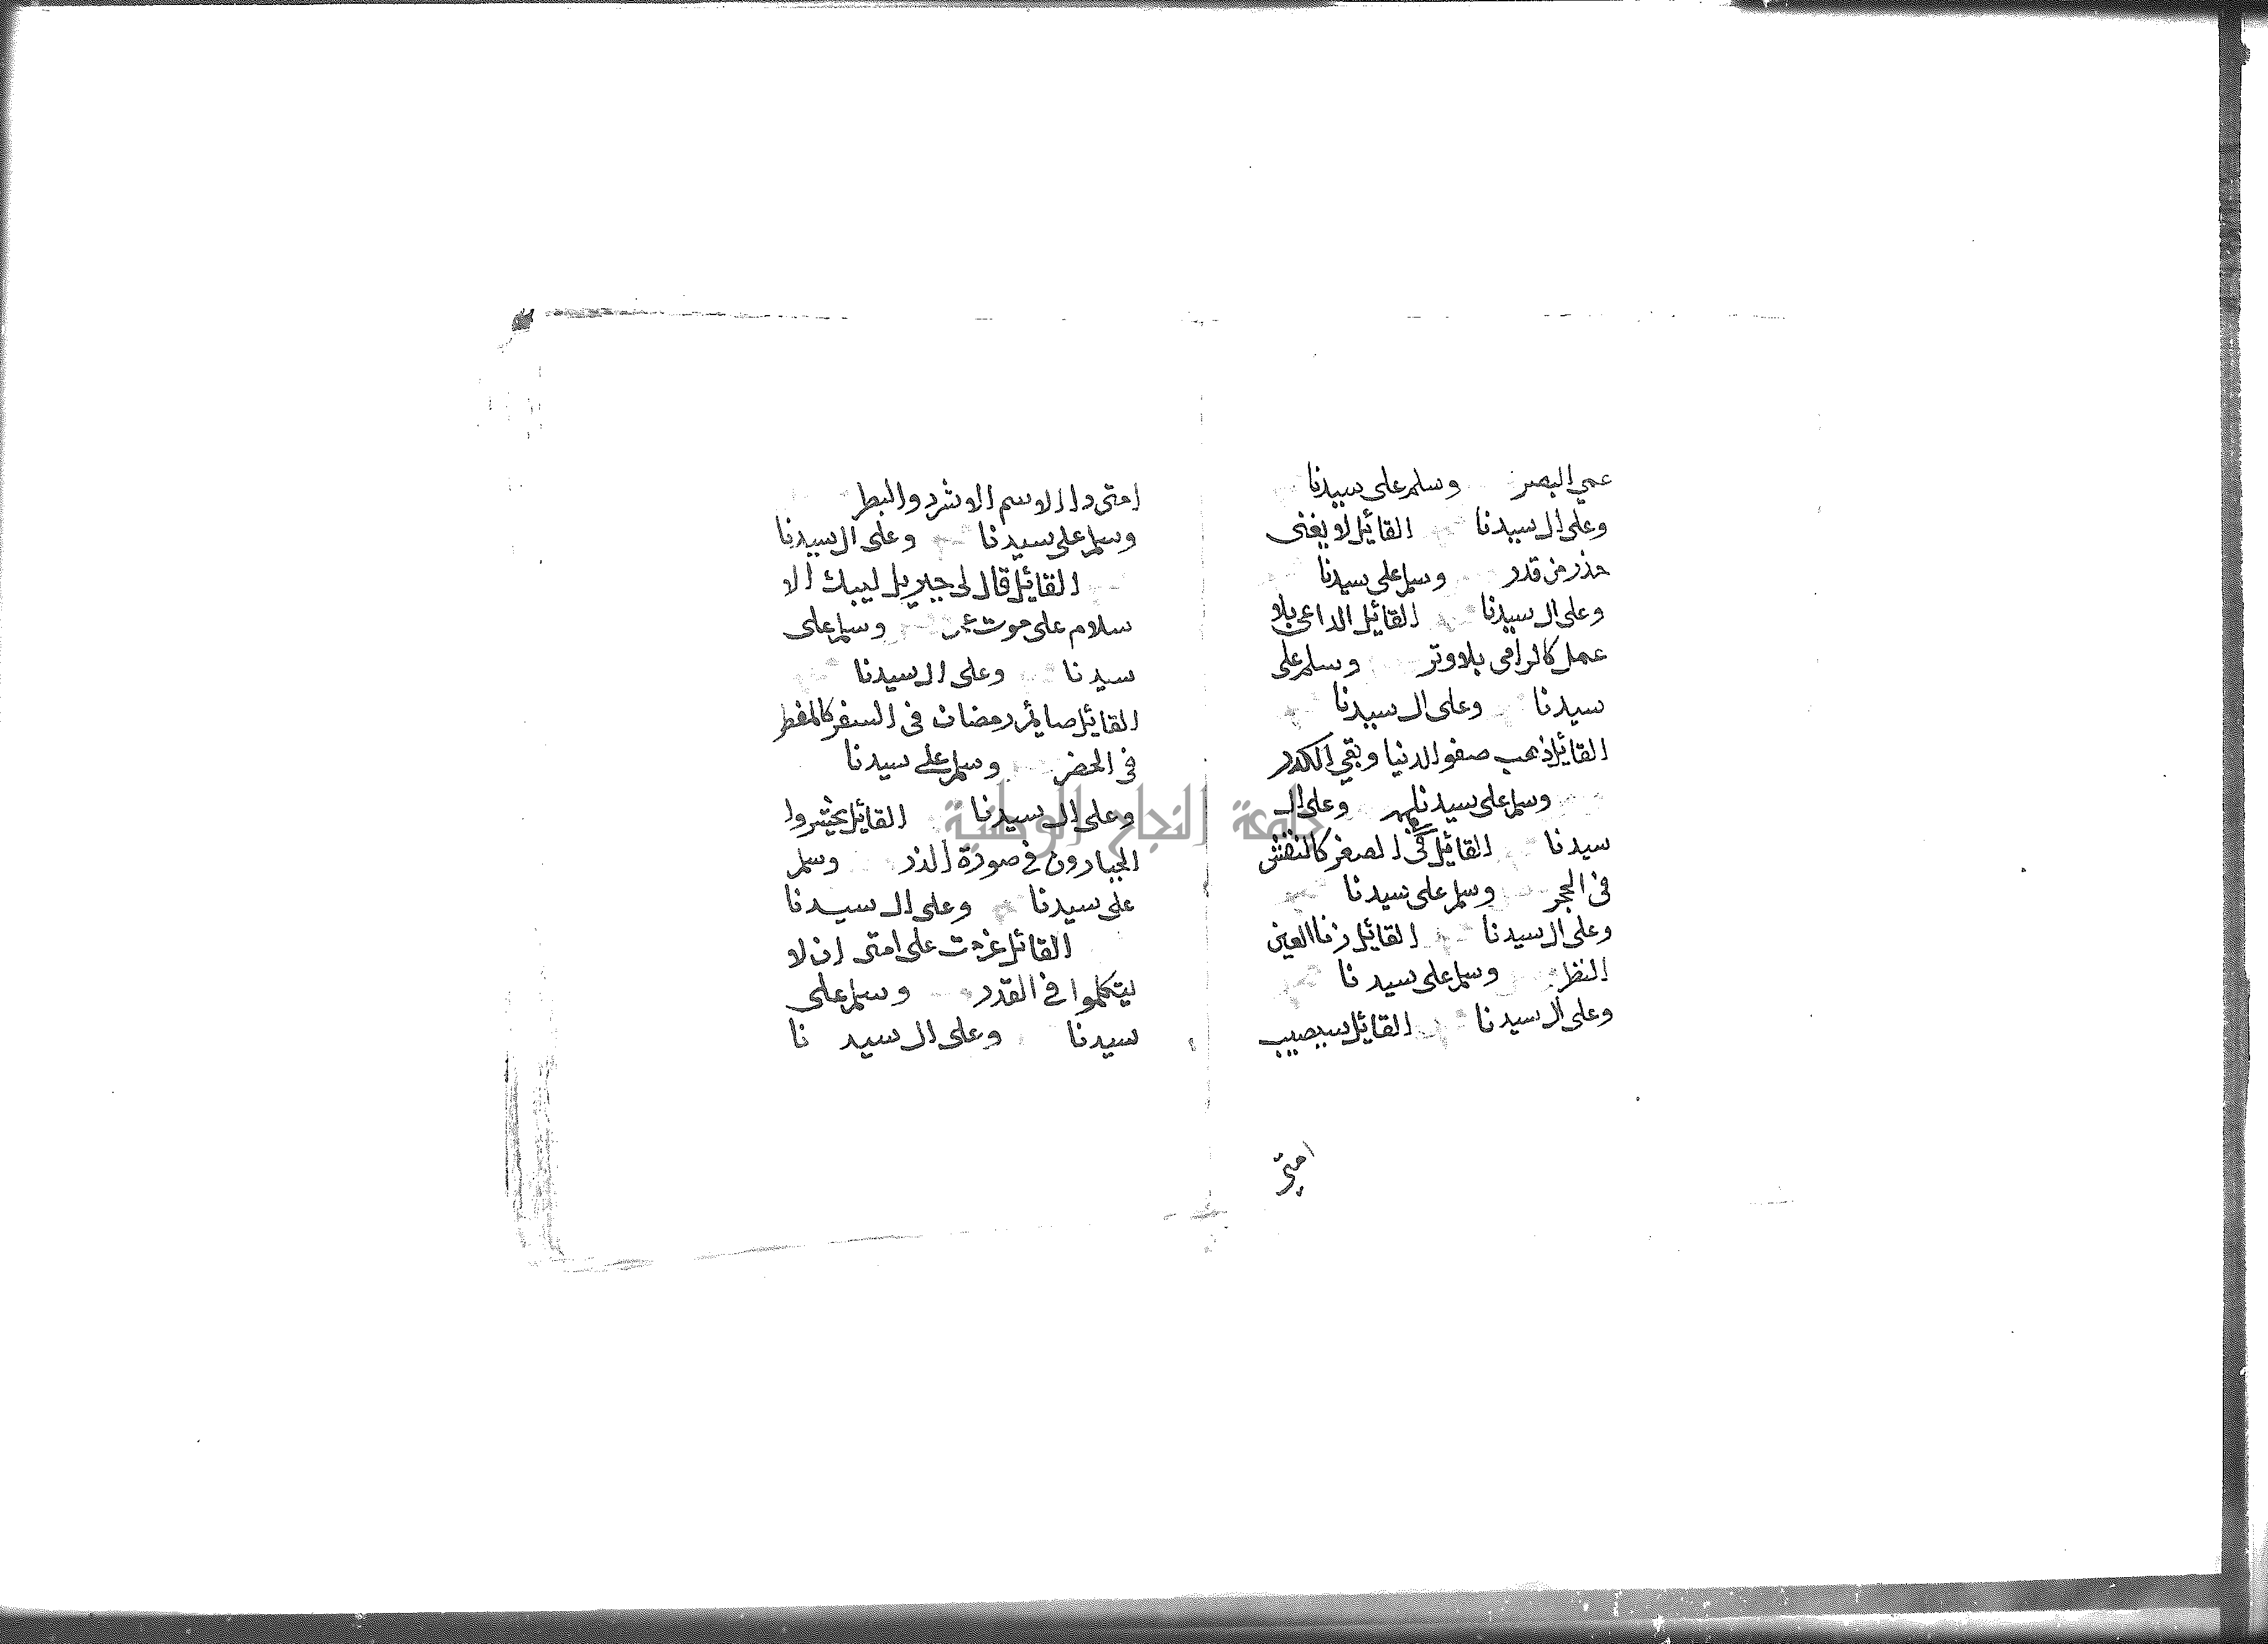 عمي البصر وسلم على سيدنا
وعلى ال سيدنا القائل لا يغنى
حذر من قدر وسلم على سيدنا
وعلى ال سيدنا القائل الداعى بلا
عمل كالرامى بلا وتر وسلم على
سيدنا وعلى ال سيدنا
القائل ذهب صفو الدنيا وبقي الكدر
وسلم على سيدنا وعلى ال
سيدنا القائل فى الصغر كالنقش
فى الحجر وسلم على سيدنا
وعلى ال سيدنا القائل زنا العين
النظر وسلم على سيدنا
وعلى ال سيدنا القائل سيصيب
امتى
امتى داا الاسم الاشر والبطر
وسلم على سيدنا وعلى ال سيدنا
القائل قال لى جبريل ليبك الا
سلام على موت عمر وسلم على
سيدنا وعلى ال سيدنا
القائل صائم رمضان فى السفر كالمفطر
فى الحضر وسلم على سيدنا
وعلى ال سيدنا القائل يحشروا
الجبارون في صورة الذر وسلم
على سيدنا وعلى ال سيدنا
القائل عزمت على امتى ان لا
يتكلموا في القدر وسلم على
سيدنا وعلى ال سيدنا
جامعة النجاح الوطنية